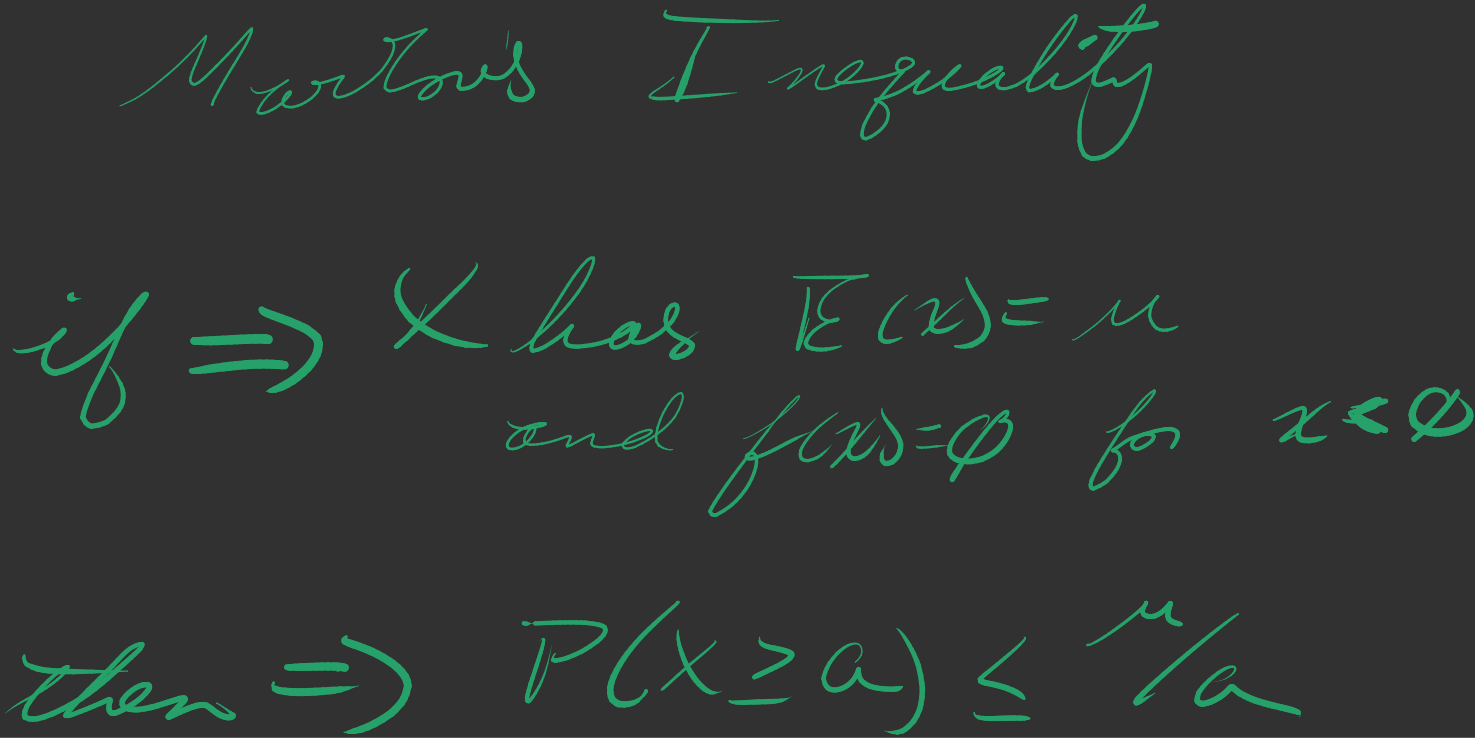 Markov's Inequality
if ⇒ X has E(x) = μ
and f(x) = ∅ for x < ∅
then ⇒ P(X ≥ a) ≤ μ/a